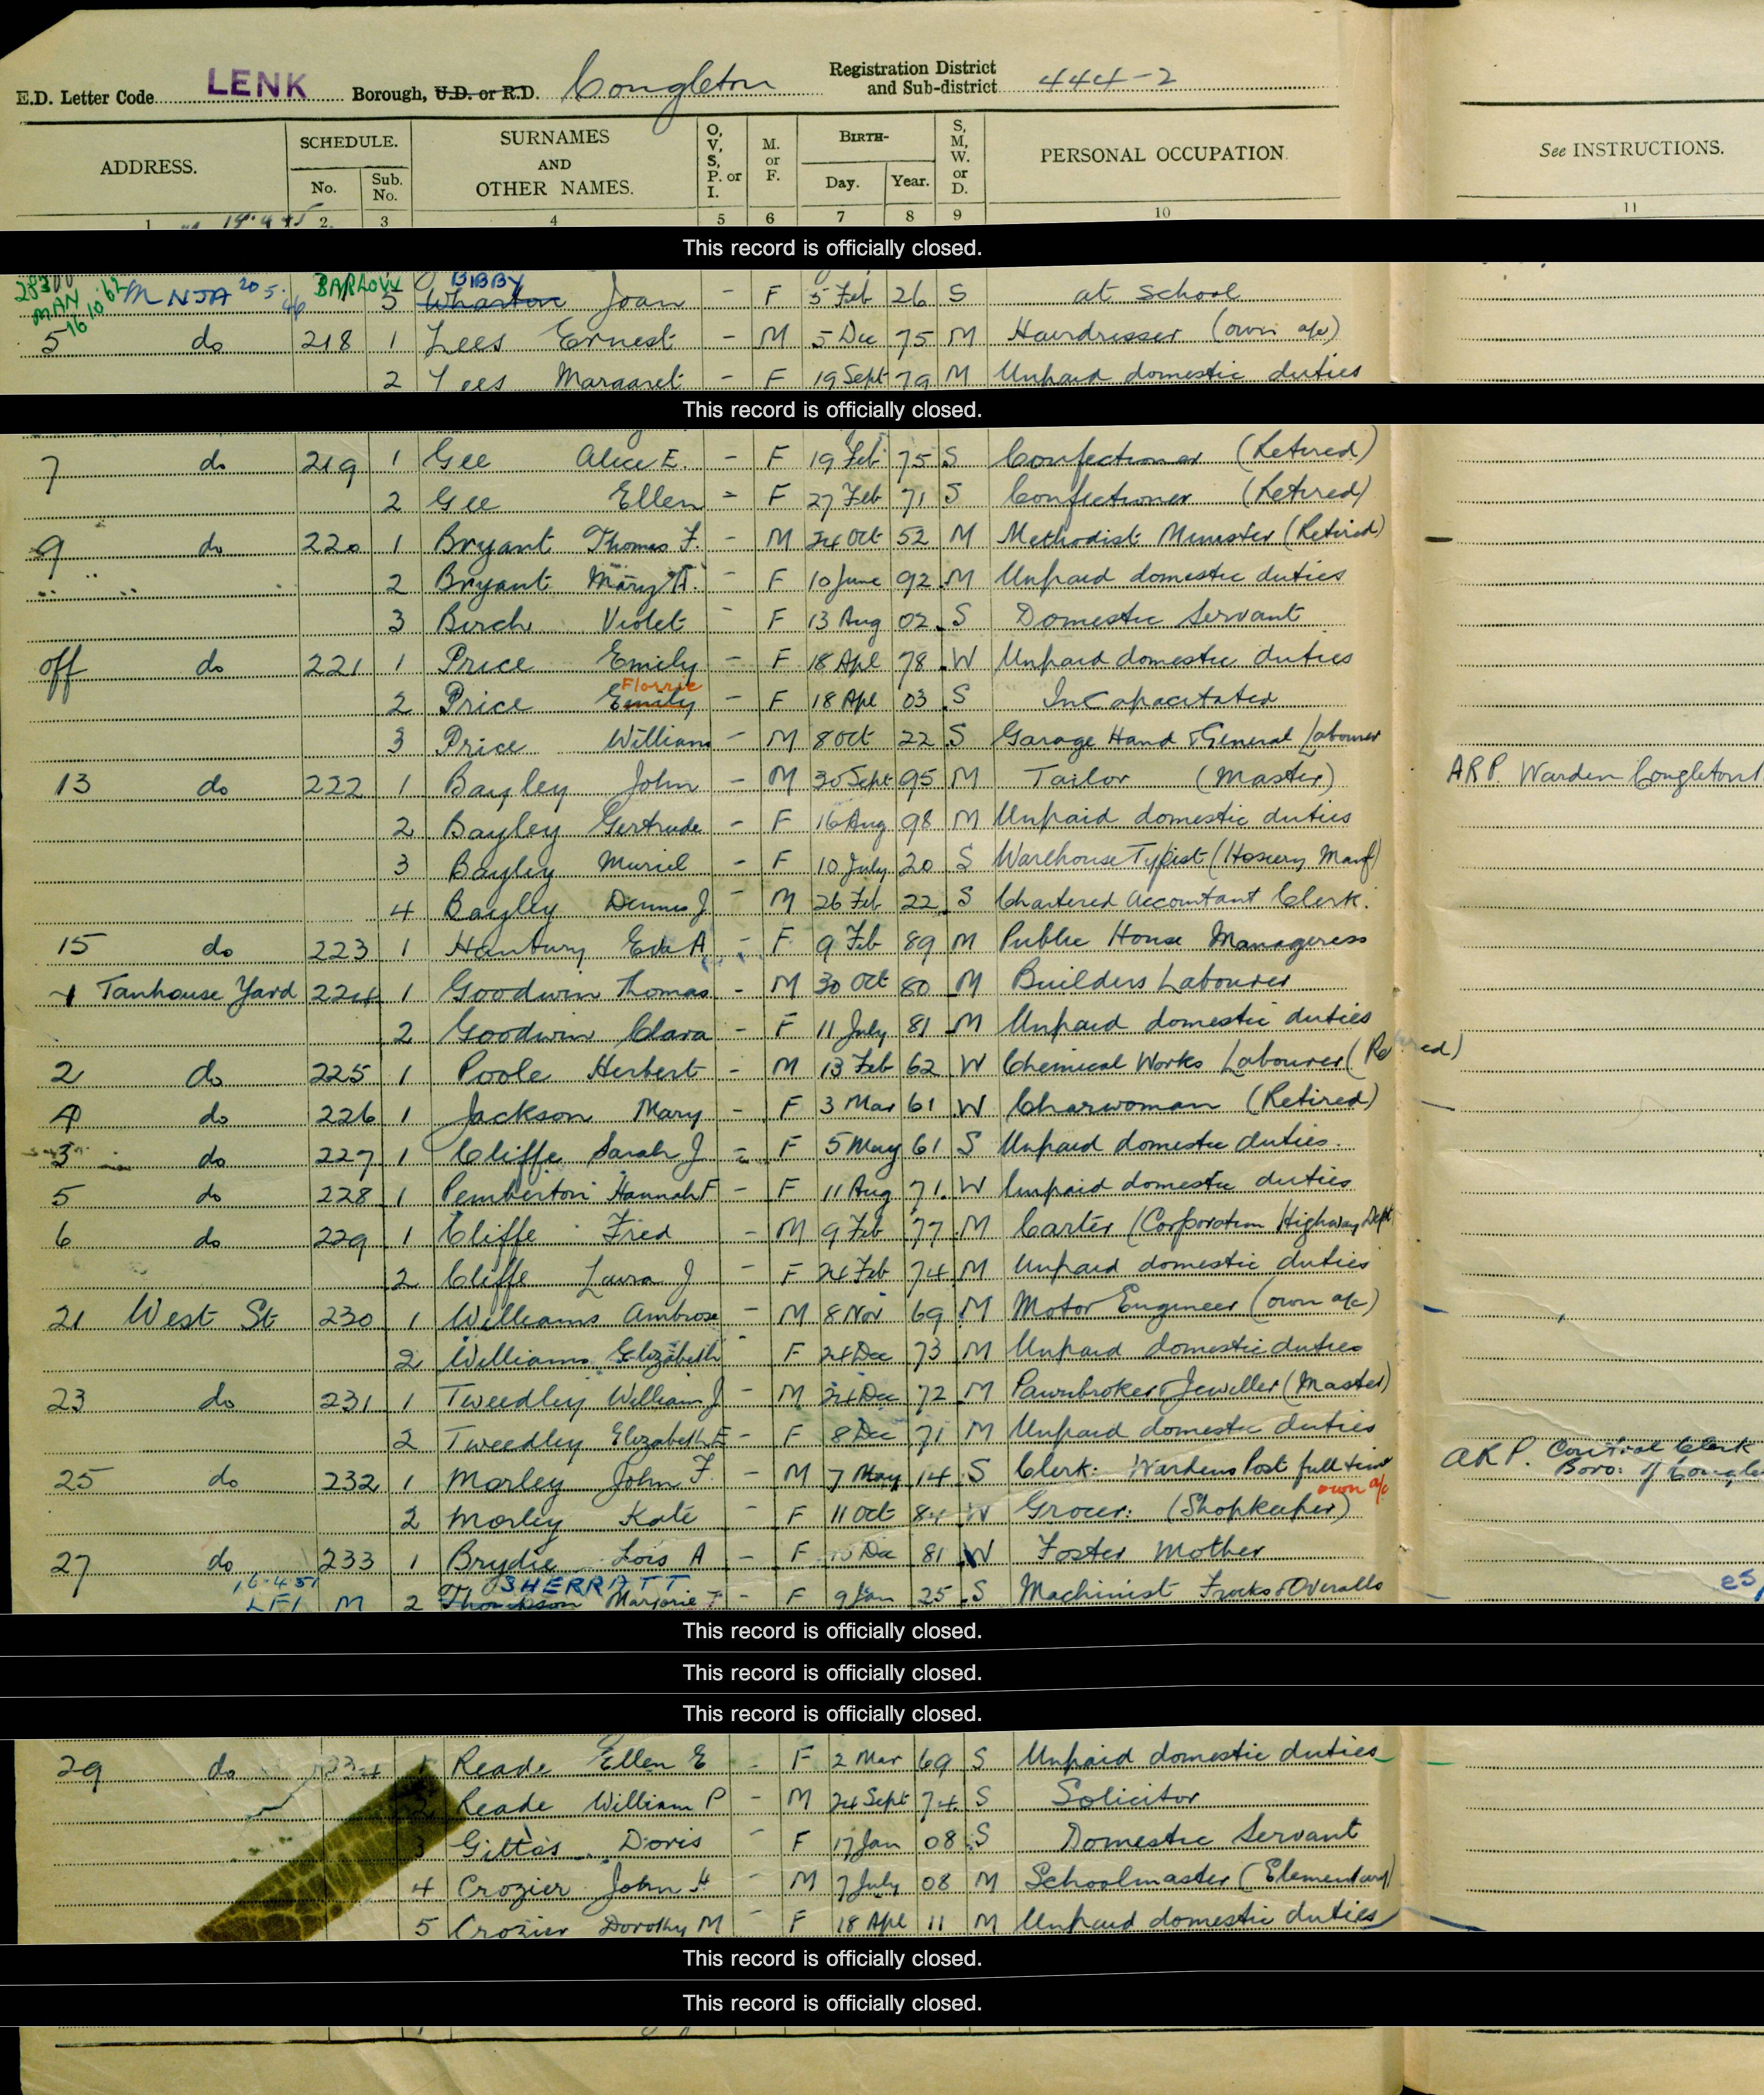 E.D. Letter Code LENK Borough, U.D. or R.D. Congleton Registration District and Sub-district 444-2
ADDRESS. SCHEDULE. No. Sub. No. SURNAMES AND OTHER NAMES. O, V, S, P. or I. M. or F. BIRTH- Day. Year. S, M, W. or D. PERSONAL OCCUPATION. See INSTRUCTIONS.
1 2 3 4 5 6 7 8 9 10 11
This record is officially closed.
BARLOW BIBBY
M NJA 20 5 46 5 Wharton Joan - F 5 Feb 26 S at School
5 do 218 1 Lees Ernest - M 5 Dec 75 M Hairdresser (own a/c)
2 Lees Margaret - F 19 Sept 79 M Unpaid domestic duties
This record is officially closed.
7 do 219 1 Gee Alice E. - F 19 Feb 75 S Confectioner (Retired)
2 Gee Ellen - F 27 Feb 71 S Confectioner (Retired)
9 do 220 1 Bryant Thomas F. - M 24 Oct 52 M Methodist Minister (Retired)
2 Bryant Mary A. - F 10 June 92 M Unpaid domestic duties
3 Birch Violet - F 13 Aug 02 S Domestic Servant
off do 221 1 Price Emily - F 18 Apl 78 W Unpaid domestic duties
Florrie
2 Price Emily - F 18 Apl 03 S Incapacitated
3 Price William - M 8 Oct 22 S Garage Hand & General Labourer
13 do 222 1 Bayley John - M 30 Sept 95 M Tailor (Master) ARP. Warden Congleton
2 Bayley Gertrude - F 16 Aug 98 M Unpaid domestic duties
3 Bayley Muriel - F 10 July 20 S Warehouse Typist (Hosiery Manf)
4 Bayley Dennis J - M 26 Feb 22 S Chartered Accountant Clerk.
15 do 223 1 Hanbury Eva A - F 9 Feb 89 M Public House Manageress
1 Tanhouse Yard 224 1 Goodwin Thomas - M 30 Oct 80 M Builders Labourer
2 Goodwin Clara - F 11 July 81 M Unpaid domestic duties
2 do 225 1 Poole Herbert - M 13 Feb 62 W Chemical Works Labourer (Retired)
4 do 226 1 Jackson Mary - F 3 Mar 61 W Charwoman (Retired)
3 do 227 1 Cliffe Sarah J - F 5 May 61 S Unpaid domestic duties.
5 do 228 1 Pemberton Hannah F - F 11 Aug 71 W Unpaid domestic duties
6 do 229 1 Cliffe Fred - M 9 Feb 77 M Carter (Corporation Highway Dept
2 Cliffe Laura J - F 24 Feb 74 M Unpaid domestic duties
21 West St 230 1 Williams Ambrose - M 8 Nov 69 M Motor Engineer (own a/c)
2 Williams Elizabeth - F 24 Dec 73 M Unpaid domestic duties
23 do 231 1 Tweedley William J - M 24 Dec 72 M Pawnbroker & Jeweller (Master)
2 Tweedley Elizabeth E - F 8 Dec 71 M Unpaid domestic duties
25 do 232 1 Morley John F. - M 7 May 14 S Clerk: Wardens Post full time ARP. Control Clerk
Boro: of
own a/c
2 Morley Kate - F 11 Oct 84 W Grocer: (Shopkeeper)
27 do 233 1 Brydie Lois A - F 10 Dec 81 W Foster Mother
16.4.51 SHERRATT
LFI M 2 Thompson Marjorie F - F 9 Jan 25 S Machinist Frocks & Overalls
This record is officially closed.
This record is officially closed.
This record is officially closed.
29 do 234 1 Reade Ellen E - F 2 Mar 69 S Unpaid domestic duties
2 Reade William P - M 24 Sept 74 S Solicitor
3 Gittos Doris - F 17 Jan 08 S Domestic Servant
4 Crozier John H - M 7 July 08 M Schoolmaster (Elementary)
5 Crozier Dorothy M - F 18 Apl 11 M Unpaid domestic duties
This record is officially closed.
This record is officially closed.